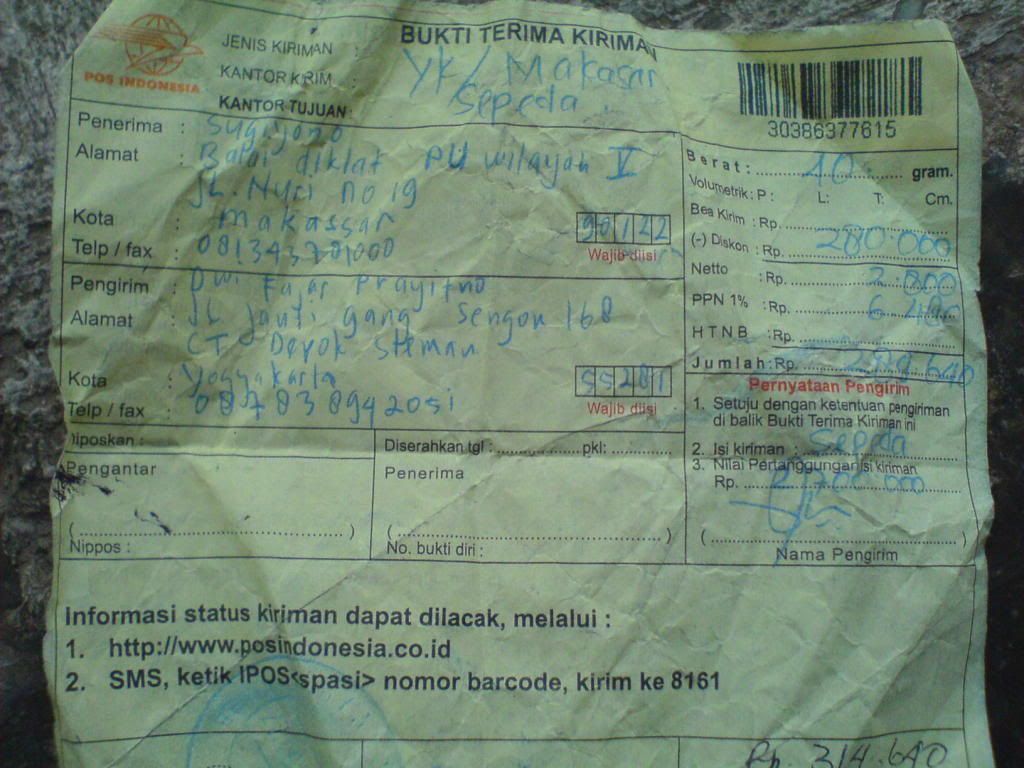 BUKTI TERIMA KIRIMAN
POS INDONESIA
JENIS KIRIMAN :
KANTOR KIRIM : YK / Makasar
KANTOR TUJUAN : Sepeda
30386377615
Penerima : Sugiyono
Alamat : Balai diklat PU wilayah V
JL. Nuri no 19
Kota : Makassar 90122
Telp / fax : 081343701000 Wajib diisi
Pengirim : Dwi Fajar Prayitno
Alamat : JL Janti gang Sengon 168
CT Depok Sleman
Kota : Yogyakarta 55281
Telp / fax : 087838942051 Wajib diisi
Berat : 10 gram.
Volumetrik : P : L: T: Cm.
Bea Kirim : Rp. 280.000
(-) Diskon : Rp.
Netto : Rp. 2.800
PPN 1% : Rp.
HTNB : Rp.
Jumlah : Rp.
Pernyataan Pengirim
1. Setuju dengan ketentuan pengiriman
di balik Bukti Terima Kiriman ini
2. Isi kiriman : Sepeda
3. Nilai Pertanggungan isi kiriman
Rp.
(..............................)
Nama Pengirim
Diposkan :
Pengantar
(..............................)
Nippos :
Diserahkan tgl : .............. pkl: ............
Penerima
(..............................)
No. bukti diri :
Informasi status kiriman dapat dilacak, melalui :
1. http://www.posindonesia.co.id
2. SMS, ketik IPOS<spasi> nomor barcode, kirim ke 8161
Rp. 314.640